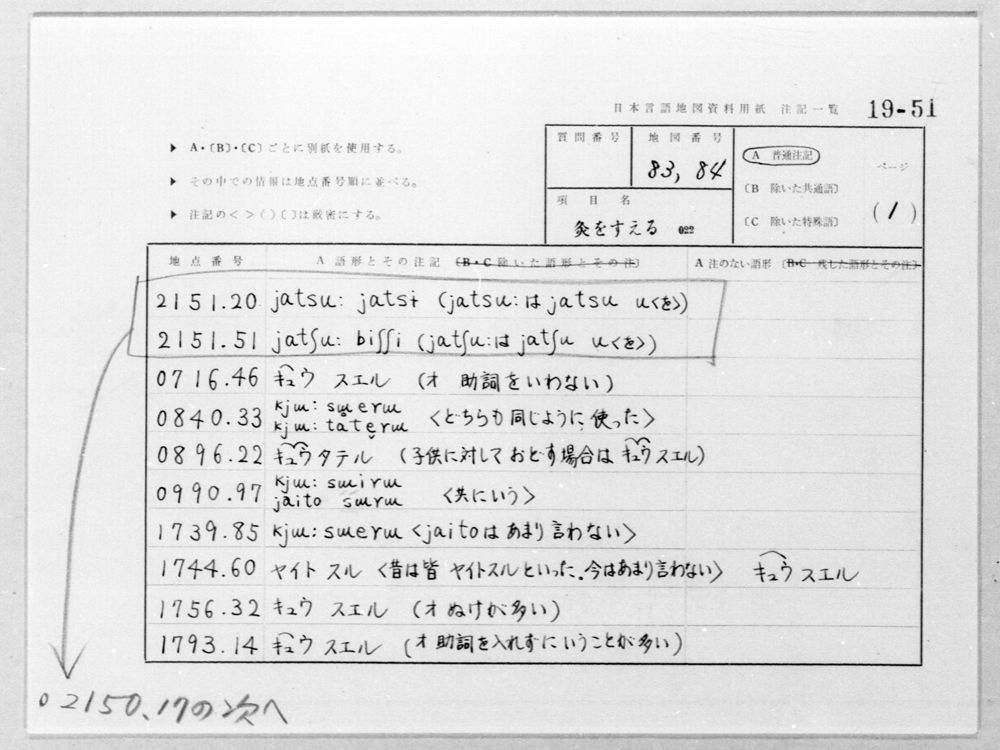 日本言語地図資料用紙 注記一覧 19-51
▶ A・〔B〕・〔C〕ごとに別紙を使用する。
▶ その中での情報は地点番号順に並べる。
▶ 注記の< >( )〔 〕は厳密にする。
質問番号
地図番号
83, 84
項目名
灸をすえる 022
A 普通注記
〔B 除いた共通語〕
〔C 除いた特殊語〕
ページ
(1)
地点番号 A 語形とその注記 〔B・C 除いた語形とその注〕 A 注のない語形 〔B・C 残した語形とその注〕
2151.20 jatsu: jatsɨ (jatsu:はjatsu u<を>)
2151.51 jatʃu: biʃʃi (jatʃu:はjatʃu u<を>)
0716.46 キュウ スエル (オ 助詞をいわない)
0840.33 kjɯ: sɯerɯ
kjɯ: taterɯ <どちらも同じように使った>
0896.22 キュウタテル (子供に対しておどす場合はキュウスエル)
0990.97 kjɯ: sɯirɯ
jaito sɯrɯ <共にいう>
1739.85 kjɯ: sɯerɯ <jaitoはあまり言わない>
1744.60 ヤイト スル <昔は皆ヤイトスルといった.今はあまり言わない> キュウ スエル
1756.32 キュウ スエル (オ ぬけが多い)
1793.14 キュウ スエル (オ 助詞を入れずにいうことが多い)
2150.17の次へ